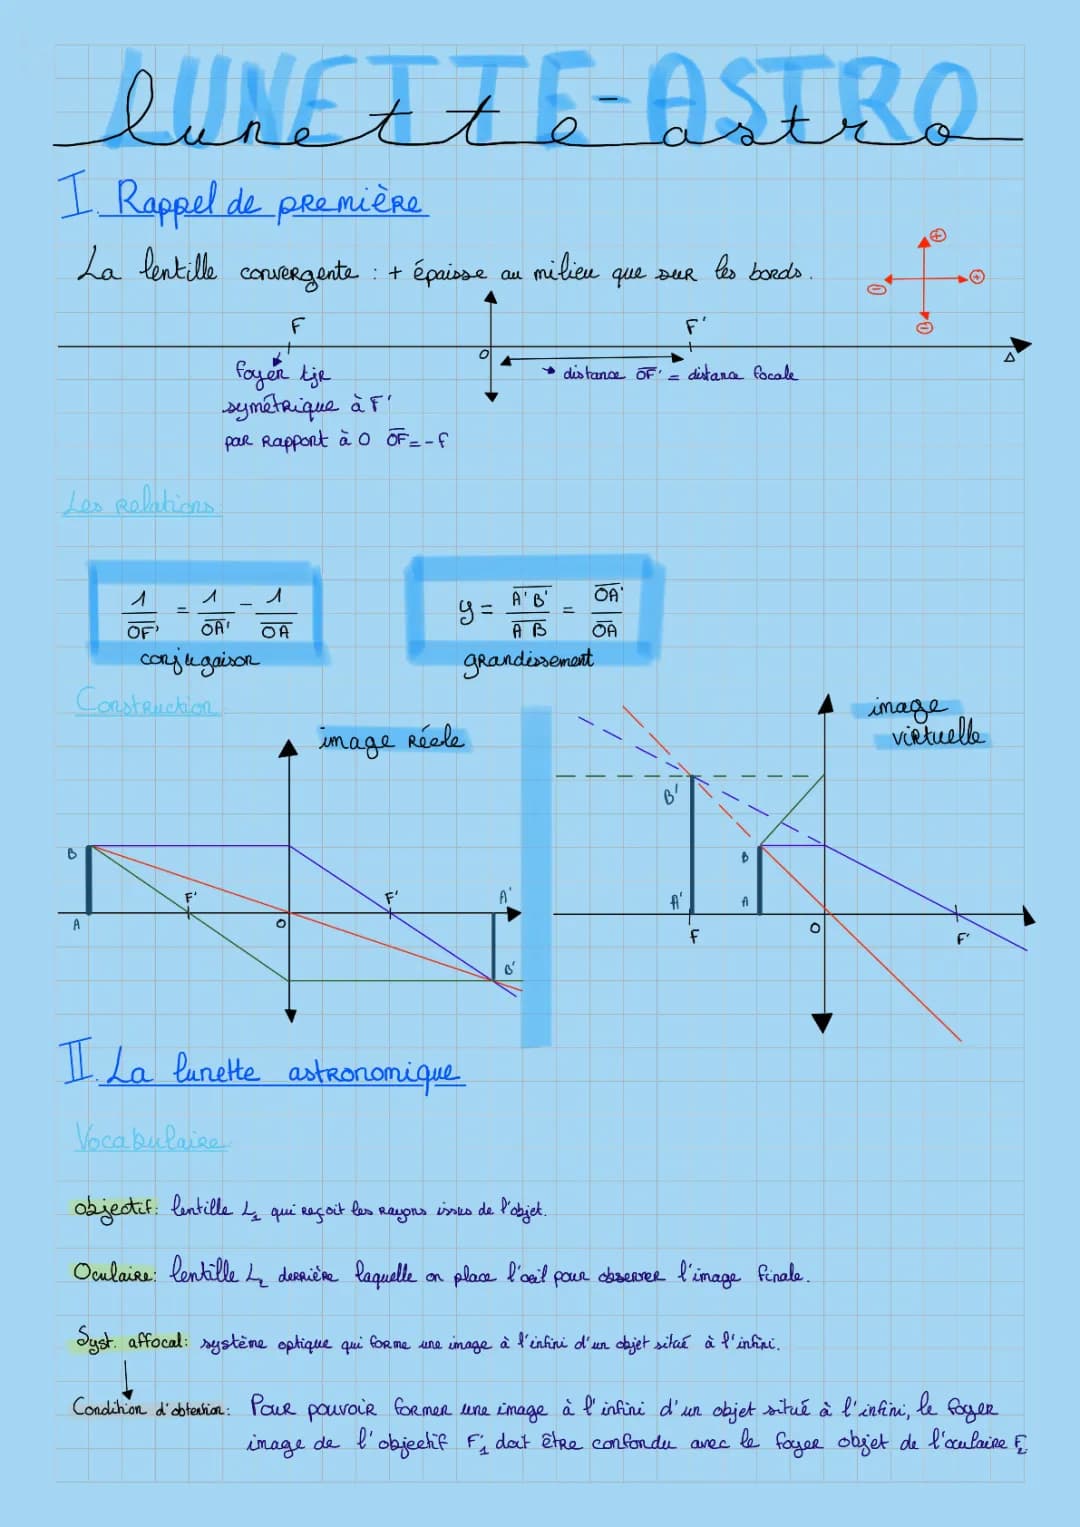 LUNETTE-ASTRO
lunette-astro
I. Rappel de première
La lentille convergente : + épaisse au milieu que sur les bords.
+
- +
-
F F'
O Δ
foyer tjr
symétrique à F'
par rapport à O OF = -f
→ distance OF' = distance focale
Les relations
1/OF' = 1/OA' - 1/OA
conjugaison
y = A'B'/AB = OA'/OA
grandissement
Construction
image réele
B
A
F'
O
F'
A'
B'
image
virtuelle
B'
A'
F
B
A
O
F'
II. La lunette astronomique
Vocabulaire
objectif: lentille L1 qui reçoit les rayons issus de l'objet.
Oculaire: lentille L2 derrière laquelle on place l'oeil pour observer l'image finale.
Syst. affocal: système optique qui forme une image à l'infini d'un objet situé à l'infini.
Condition d'obtention: Pour pouvoir former une image à l'infini d'un objet situé à l'infini, le foyer
image de l'objectif F'1 doit être confondu avec le foyer objet de l'oculaire F2